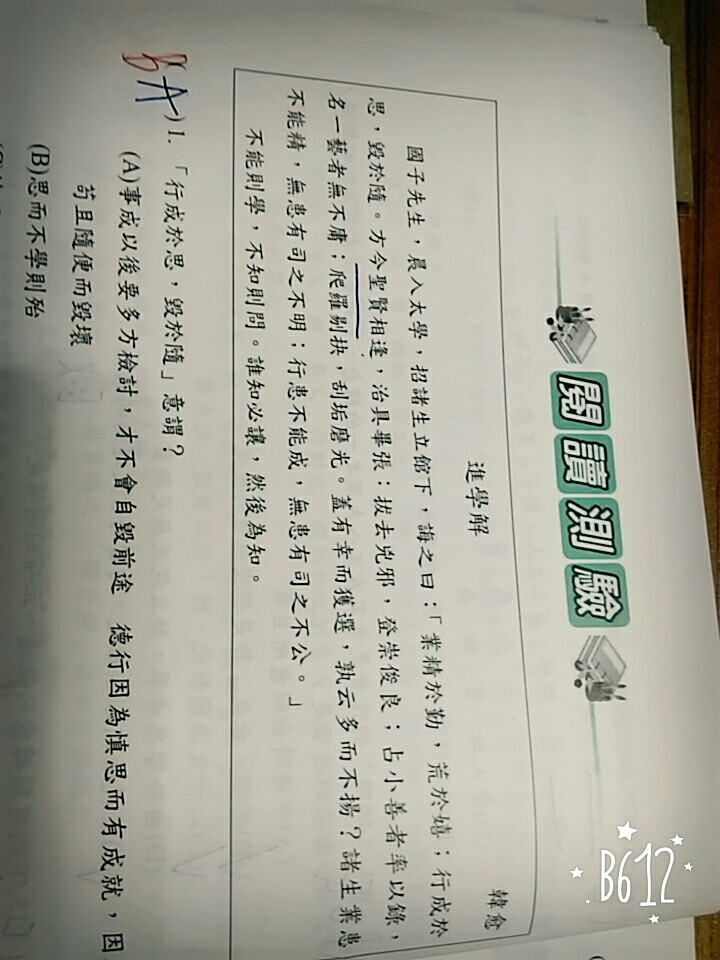 閱讀測驗
進學解 韓愈
國子先生，晨入太學，招諸生立館下，誨之曰：「業精於勤，荒於嬉；行成於
思，毀於隨。方今聖賢相逢，治具畢張：拔去兇邪，登崇俊良；占小善者率以錄，
名一藝者無不庸；爬羅剔抉，刮垢磨光。蓋有幸而獲選，孰云多而不揚？諸生業患
不能精，無患有司之不明；行患不能成，無患有司之不公。」
不能則學，不知則問。雖知必讓，然後為知。
B A )1. 「行成於思，毀於隨」意謂？
(A)事成以後要多方檢討，才不會自毀前途 德行因為慎思而有成就，因
苟且隨便而毀壞
(B)思而不學則殆
B612